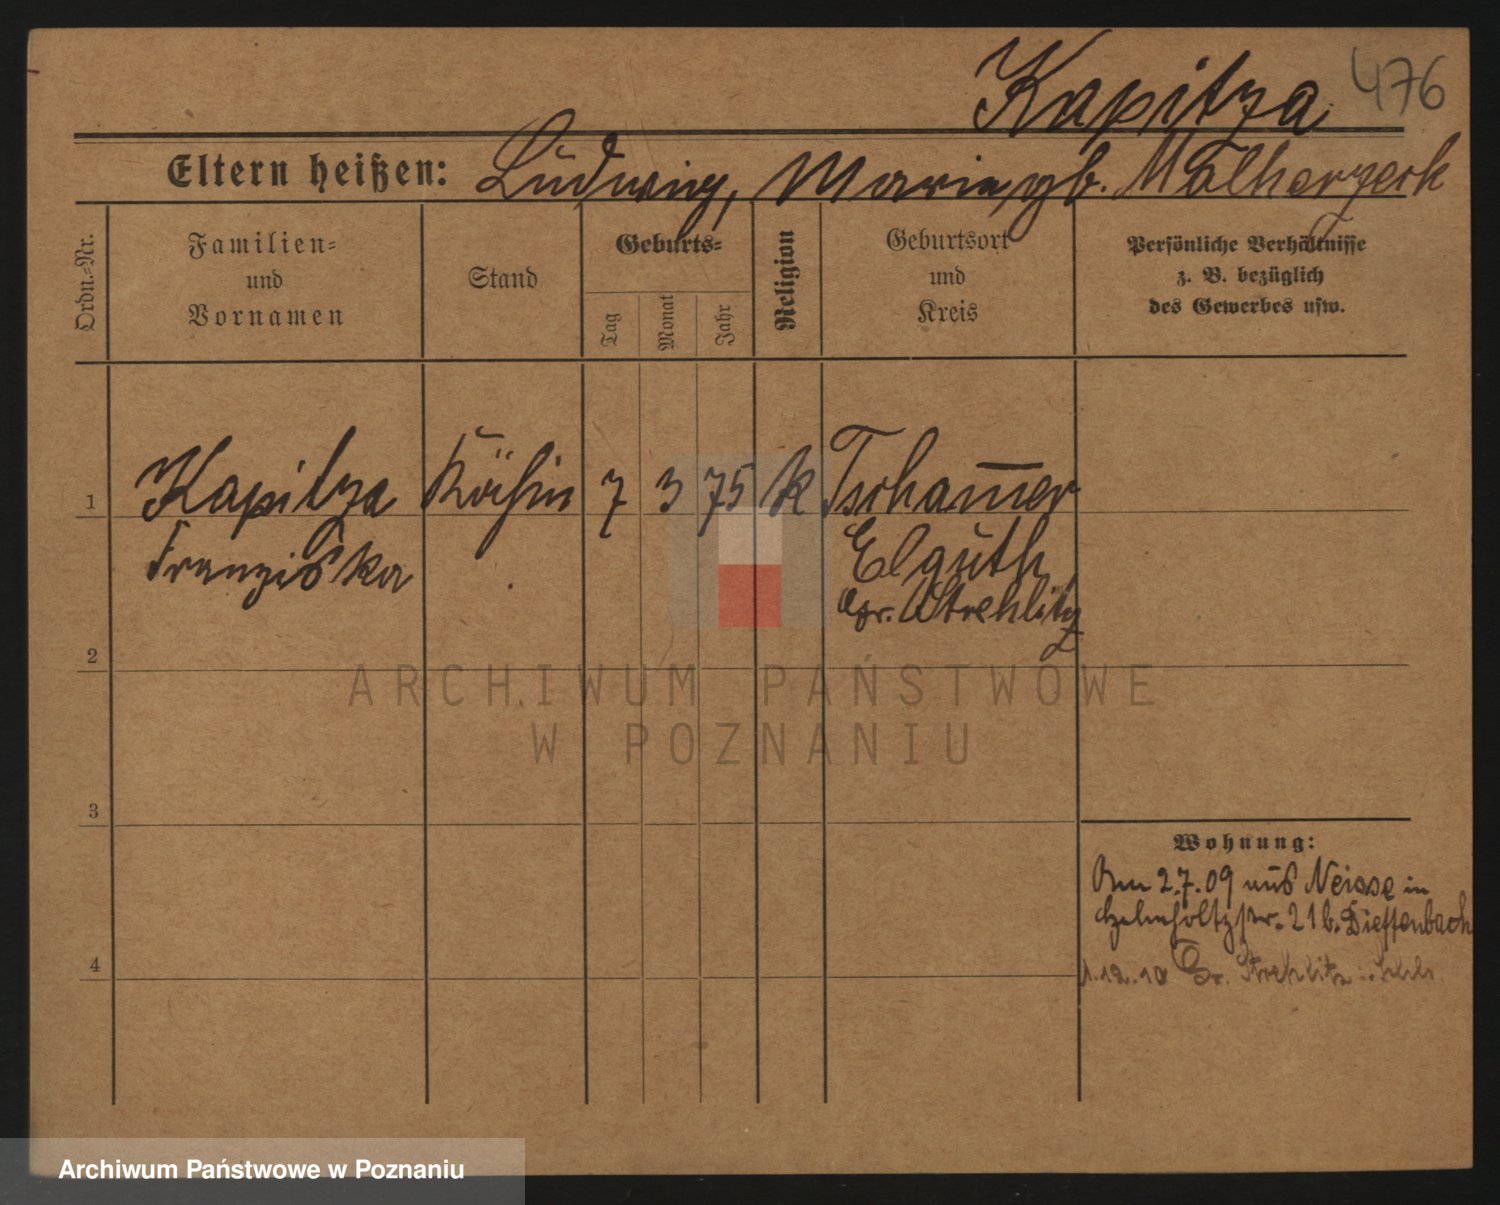 Kapitza 476
Eltern heißen: Ludwig, Marie gb.
Ordn.-Nr.
Familien-
und
Vornamen
Stand
Geburts-
Tag
Monat
Jahr
Religion
Geburtsort
und
Kreis
Persönliche Verhältnisse
z. B. bezüglich
des Gewerbes usw.
1 Kapitza Köchin 7 3 75 k Tscham̅er
Franziska Elguth
Gr. Strehlitz
2
ARCHIWUM PAŃSTWOWE
W POZNANIU
3
Wohnung:
Am 2.7.09 aus Neisse in
Helmholtzstr. 21 b. Dieffenbach
4
1.12.10 Gr. Strehlitz
Archiwum Państwowe w Poznaniu